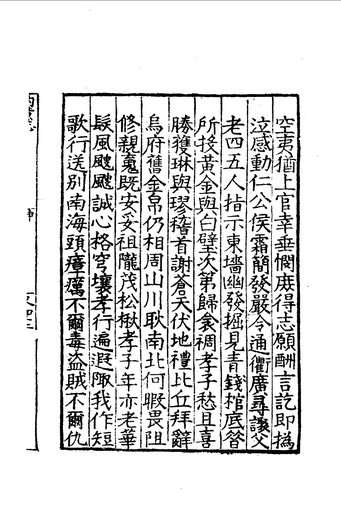 空夷猶上官幸垂憫庶得志願酬言訖即撝
泣感動仁公侯霜簡發嚴令通衢廣尋諏父
老四五人指示東墻幽發掘見青錢棺底簪
所投黃金與白璧次第歸衾裯孝子愁且喜
勝獲琳與璆稽首謝蒼天伏地禮比丘拜辭
烏府舊金帛仍相周山川耿南北何暇畏阻
修親䰟既安妥祖隴茂松楸孝子年亦老華
髮風颼颼誠心格穹壤孝行遍遐陬我作短
歌行送別南海頭瘴癘不爾毒盜賊不爾仇